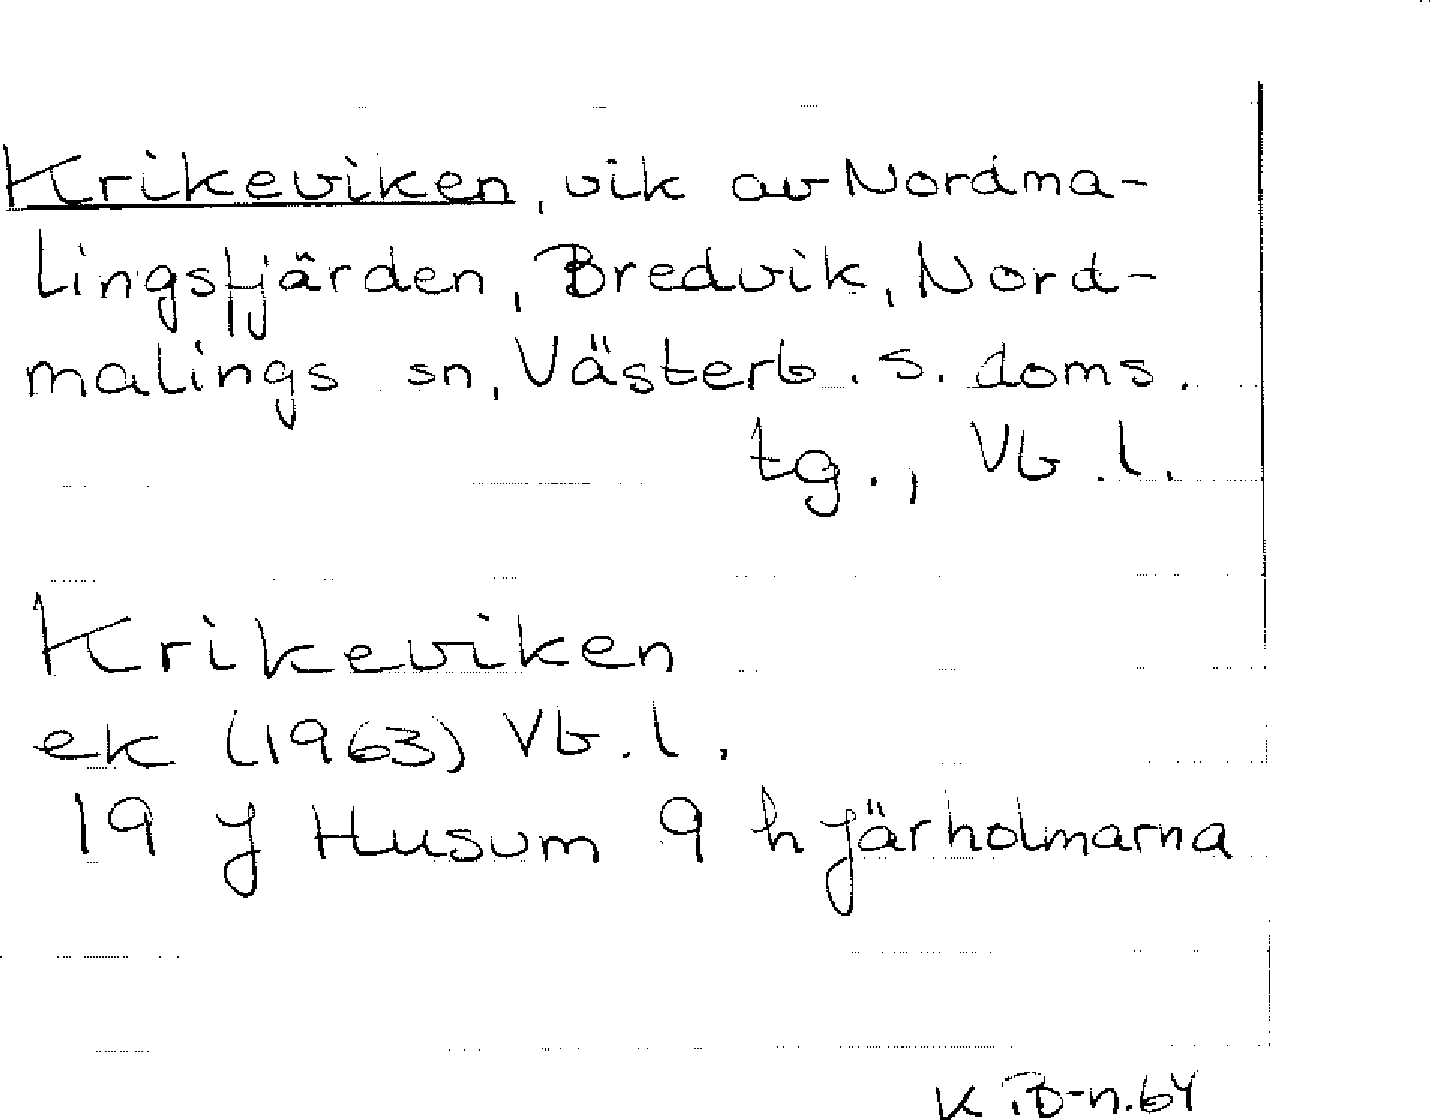 Krikeviken, vik av Nordma-
lingsfjärden, Bredvik, Nord-
malings sn, Västerb. s. doms.
tg., Vb. l.
Krikeviken
ek (1963) Vb. l.
19 J Husum 9 h Järholmarna
K B-n. 64